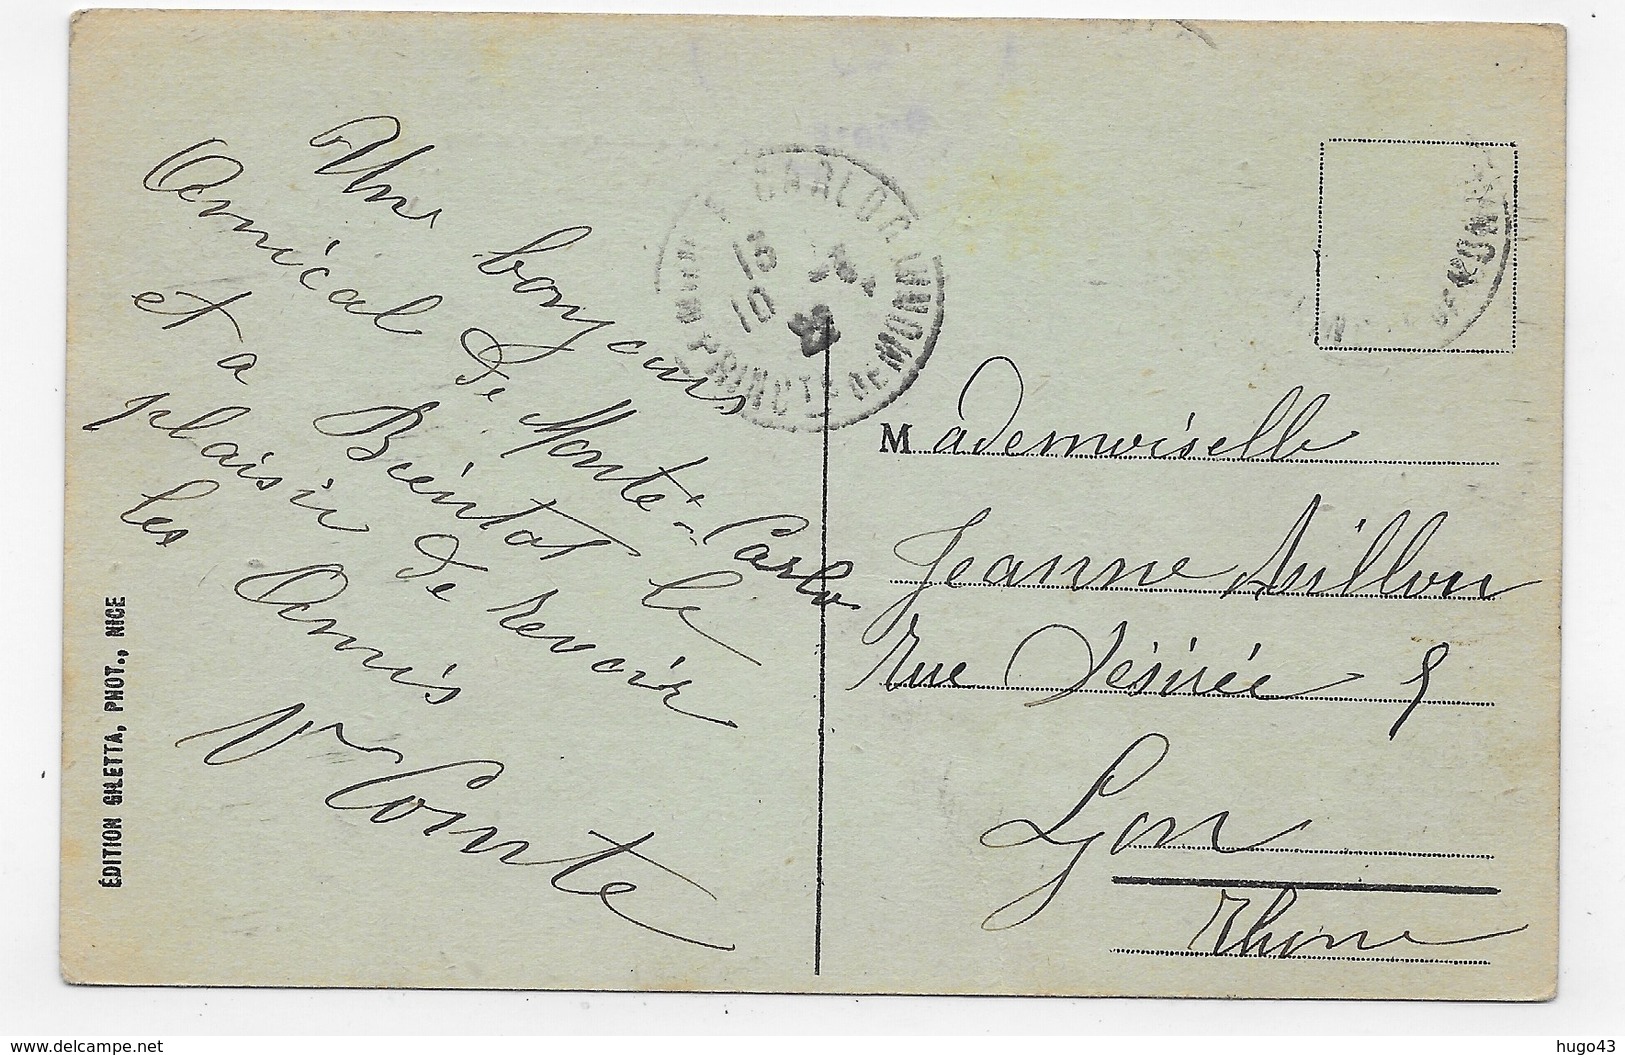 Une bonjours
Amical de Monté-Carlo
et a Biéntot le
plaisir de revoir
les Amis
Vve Comte
ÉDITION GILETTA, PHOT., NICE
CARLO
15
10
PRINCIPTE DE MONACO
Mademoiselle
Jeanne
rue Désirée 9
Lyon
Rhone
http://www.delcampe.net
hugo43